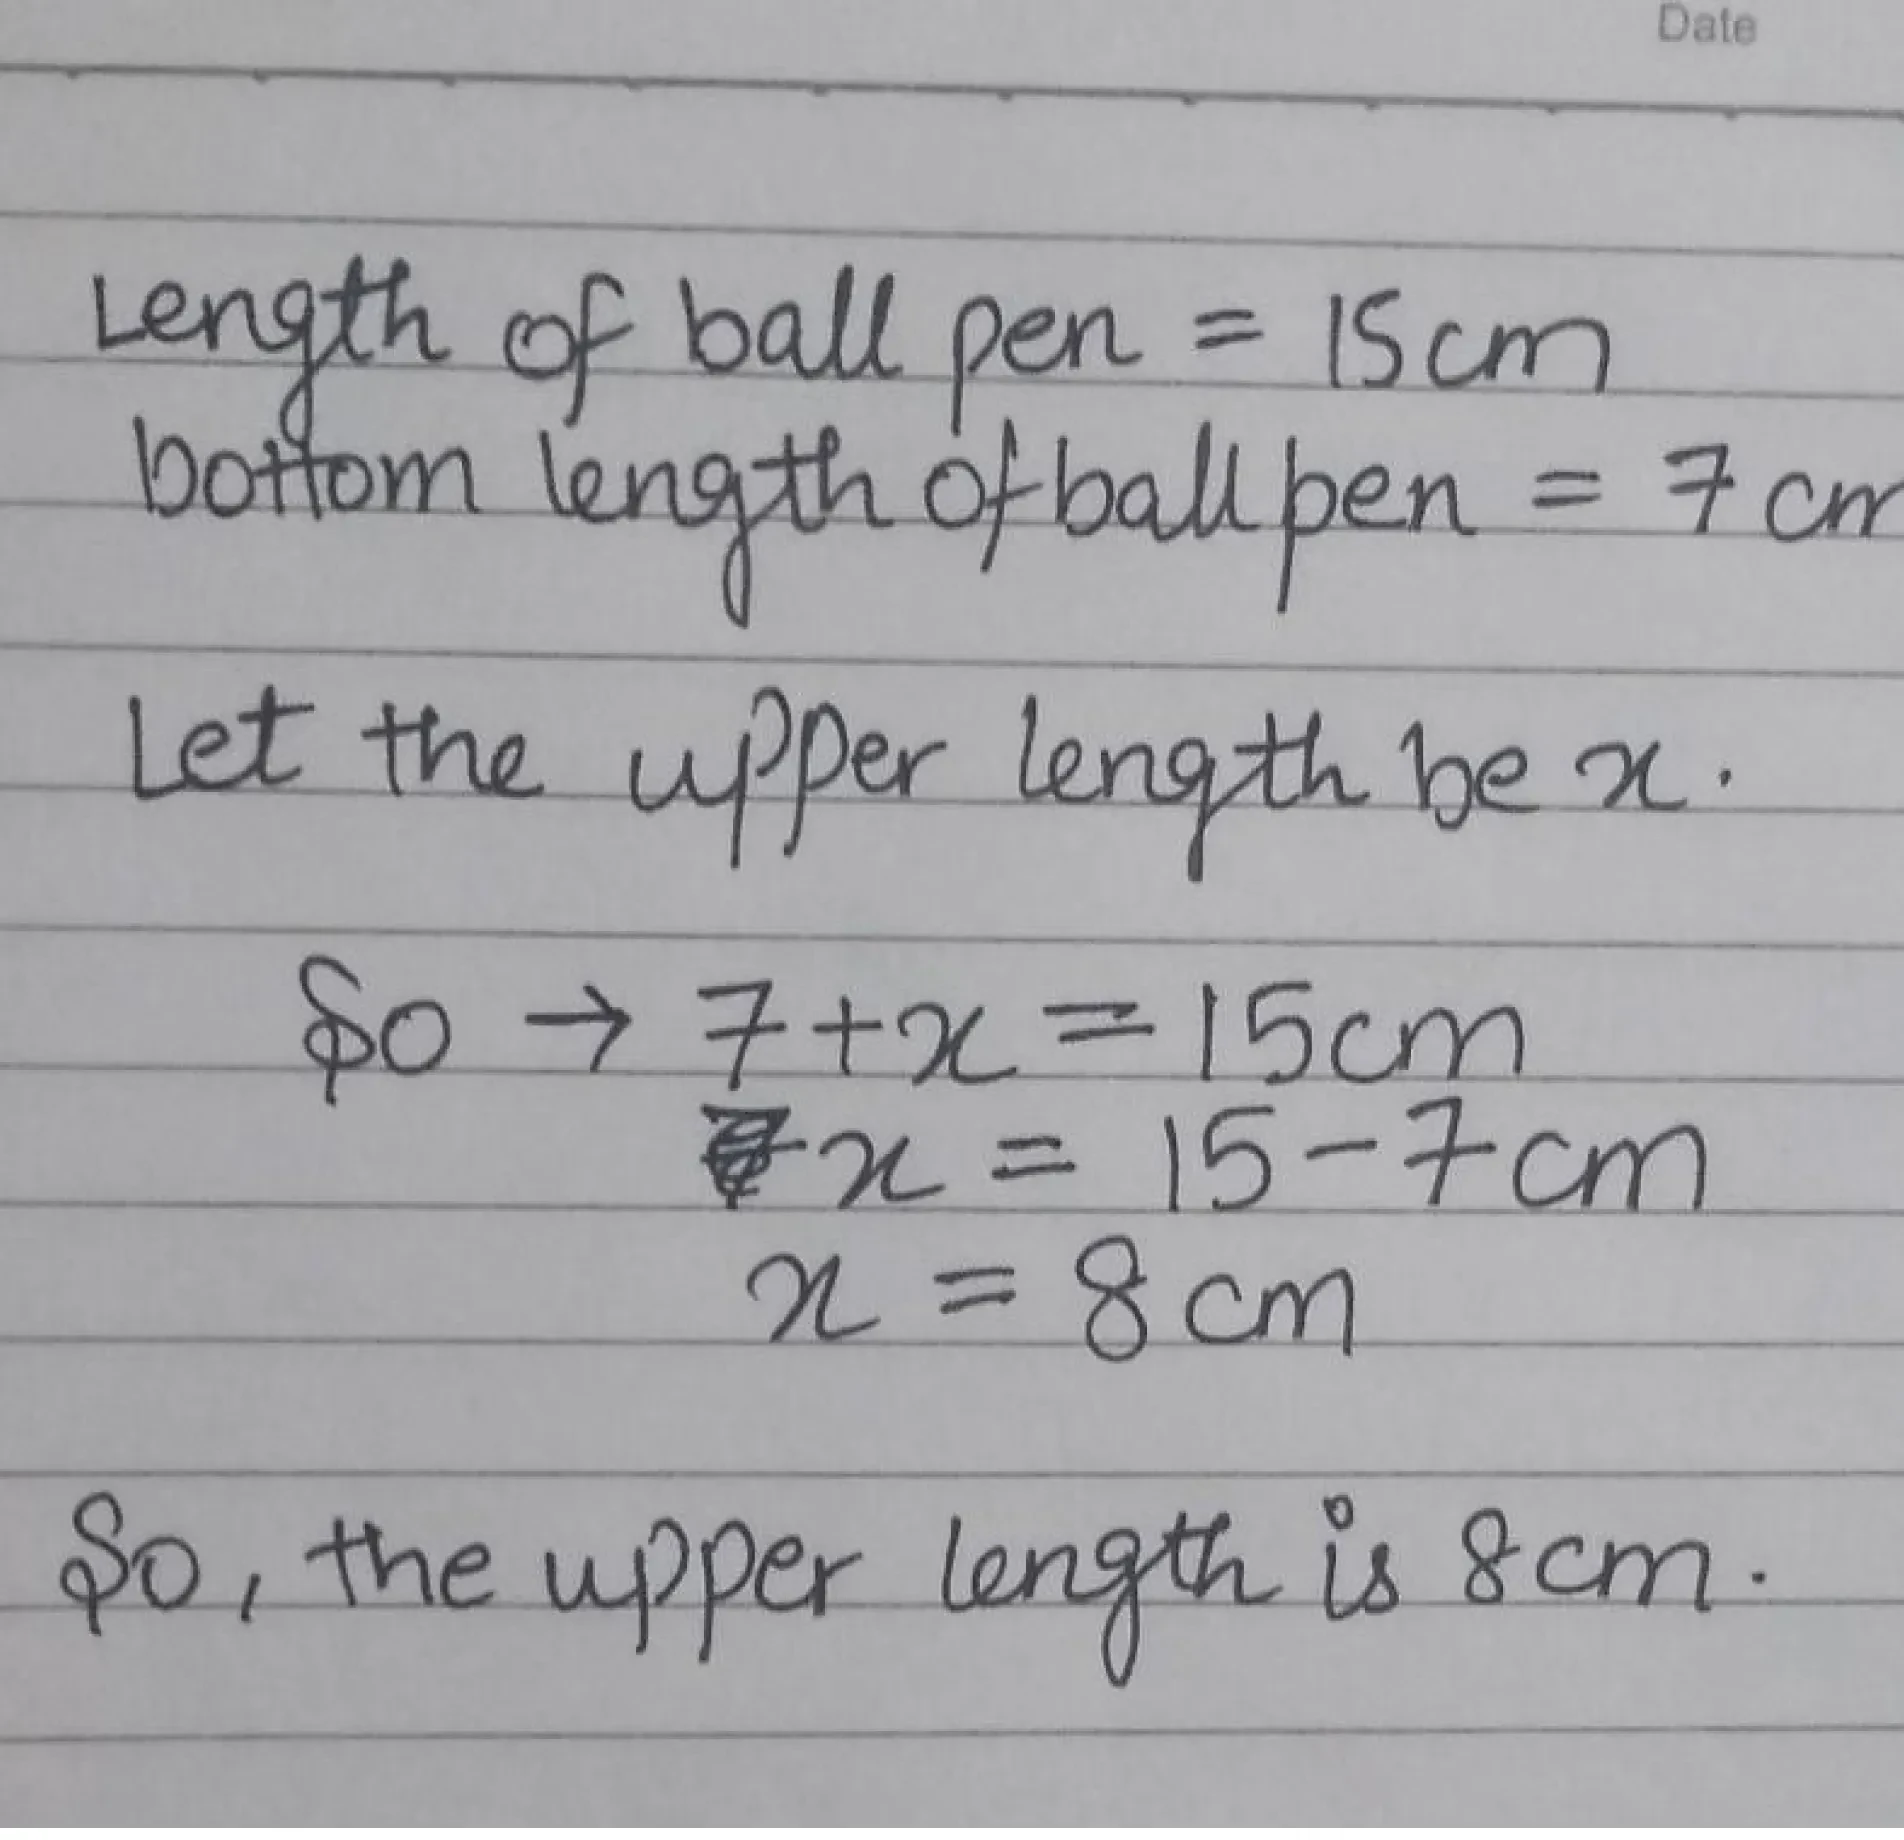 Date
Length of ball pen = 15cm
bottom length of ball pen = 7 cm
Let the upper length be x.
So → 7+x = 15cm
x = 15-7cm
x = 8 cm
So, the upper length is 8cm.